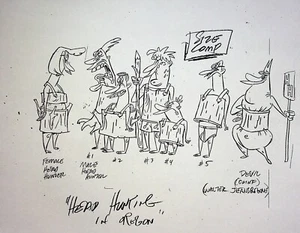 SIZE
COMP
FEMALE
HEAD
HUNTER
#1
MALE
HEAD
HUNTER
#2
#3
#4
#5
DEVIL
(CHIEF)
"HEAD HUNTING
IN OREGON"